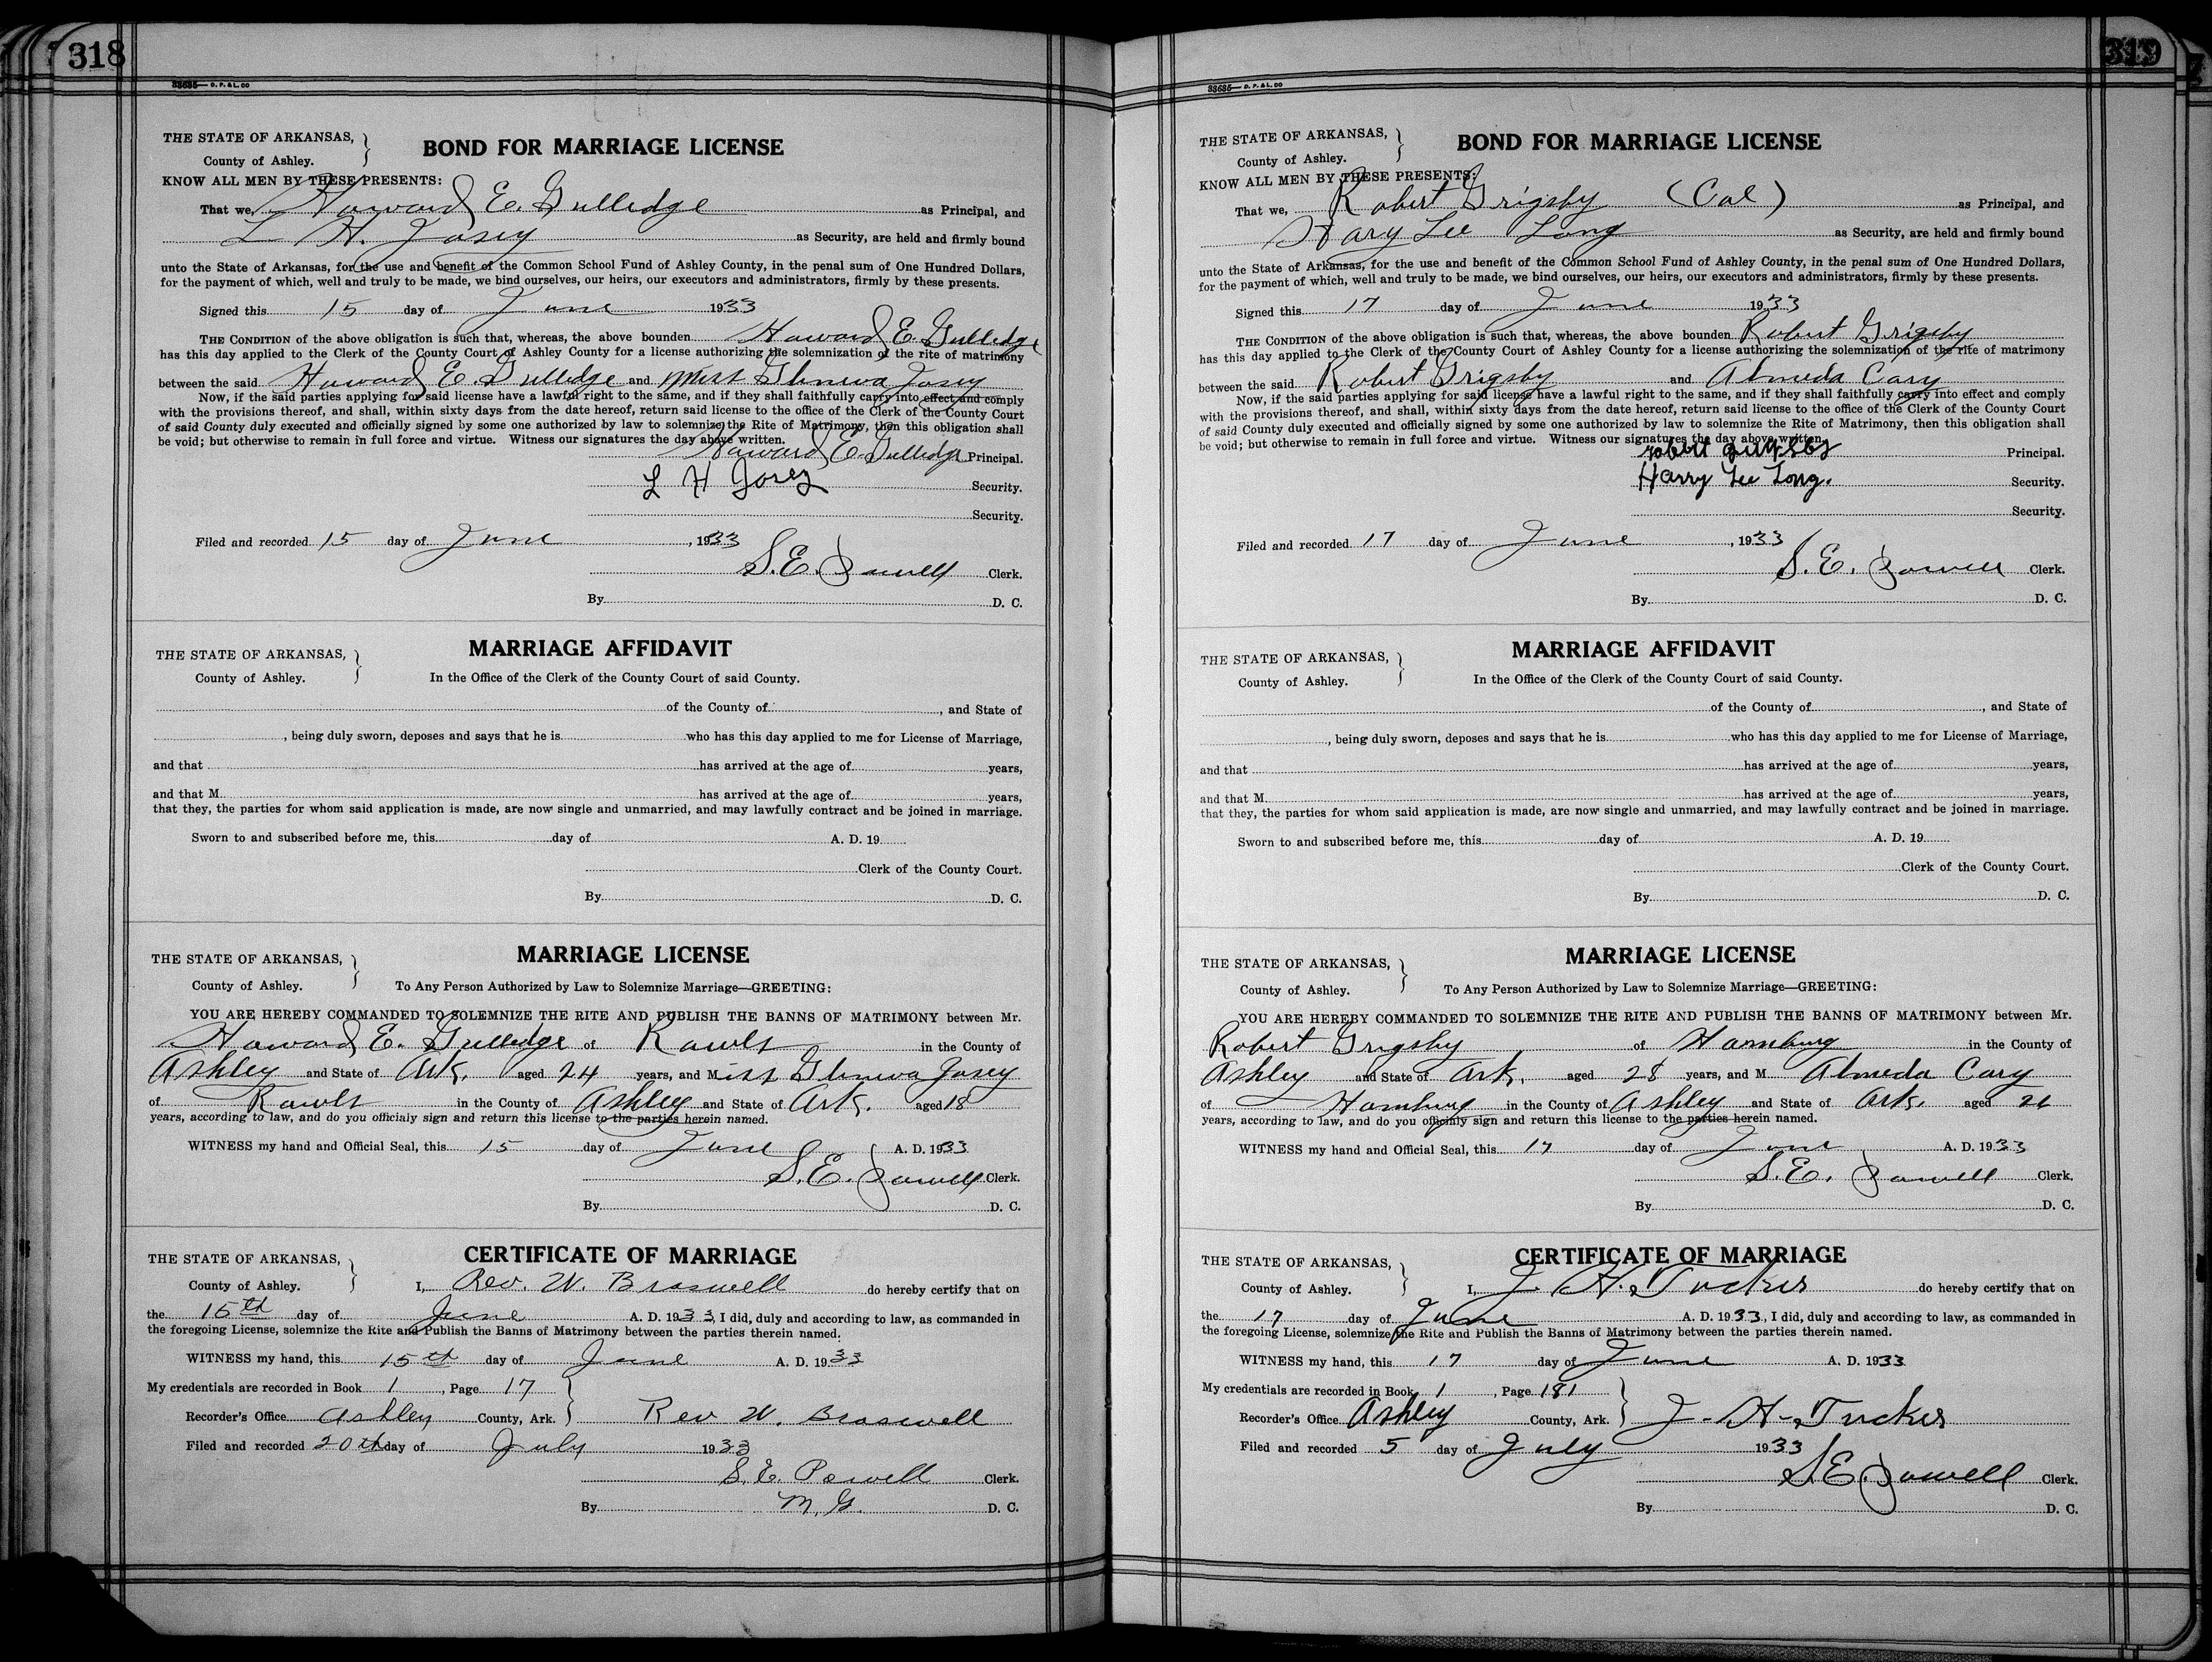 318
33685— D. P. & L. CO
THE STATE OF ARKANSAS,
County of Ashley.
BOND FOR MARRIAGE LICENSE
KNOW ALL MEN BY THESE PRESENTS:
That we, Howard E. Gulledge as Principal, and
L H. Josey as Security, are held and firmly bound
unto the State of Arkansas, for the use and benefit of the Common School Fund of Ashley County, in the penal sum of One Hundred Dollars,
for the payment of which, well and truly to be made, we bind ourselves, our heirs, our executors and administrators, firmly by these presents.
Signed this 15 day of June 1933
THE CONDITION of the above obligation is such that, whereas, the above bounden Howard E. Gulledge
has this day applied to the Clerk of the County Court of Ashley County for a license authorizing the solemnization of the rite of matrimony
between the said Howard E. Gulledge and Miss Gleneva Josey
Now, if the said parties applying for said license have a lawful right to the same, and if they shall faithfully carry into effect and comply
with the provisions thereof, and shall, within sixty days from the date hereof, return said license to the office of the Clerk of the County Court
of said County duly executed and officially signed by some one authorized by law to solemnize the Rite of Matrimony, then this obligation shall
be void; but otherwise to remain in full force and virtue. Witness our signatures the day above written.
Howard E. Gulledge Principal.
L H Josey Security.
Security.
Filed and recorded 15 day of June, 1933
S.E. Powell Clerk.
By D. C.
THE STATE OF ARKANSAS,
County of Ashley.
MARRIAGE AFFIDAVIT
In the Office of the Clerk of the County Court of said County.
of the County of , and State of
, being duly sworn, deposes and says that he is who has this day applied to me for License of Marriage,
and that has arrived at the age of years,
and that M has arrived at the age of years,
that they, the parties for whom said application is made, are now single and unmarried, and may lawfully contract and be joined in marriage.
Sworn to and subscribed before me, this day of A. D. 19
Clerk of the County Court.
By D. C.
THE STATE OF ARKANSAS,
County of Ashley.
MARRIAGE LICENSE
To Any Person Authorized by Law to Solemnize Marriage—GREETING:
YOU ARE HEREBY COMMANDED TO SOLEMNIZE THE RITE AND PUBLISH THE BANNS OF MATRIMONY between Mr.
Howard E. Gulledge of Rawls in the County of
Ashley and State of Ark. aged 24 years, and Miss Gleneva Josey
of Rawls in the County of Ashley and State of Ark. aged 18
years, according to law, and do you officialy sign and return this license to the parties herein named.
WITNESS my hand and Official Seal, this 15 day of June A. D. 1933
S.E. Powell Clerk.
By D. C.
THE STATE OF ARKANSAS,
County of Ashley.
CERTIFICATE OF MARRIAGE
I, Rev. W. Braswell do hereby certify that on
the 15th day of June A. D. 1933, I did, duly and according to law, as commanded in
the foregoing License, solemnize the Rite and Publish the Banns of Matrimony between the parties therein named.
WITNESS my hand, this 15th day of June A. D. 1933
My credentials are recorded in Book 1, Page 17
Recorder's Office Ashley County, Ark. Rev W. Braswell
Filed and recorded 20th day of July 1933
S. E. Powell Clerk.
By M. G. D. C.
319
33685— D. P. & L. CO
THE STATE OF ARKANSAS,
County of Ashley.
BOND FOR MARRIAGE LICENSE
KNOW ALL MEN BY THESE PRESENTS:
That we, Robert Grigsby (Col) as Principal, and
Harry Lee Long as Security, are held and firmly bound
unto the State of Arkansas, for the use and benefit of the Common School Fund of Ashley County, in the penal sum of One Hundred Dollars,
for the payment of which, well and truly to be made, we bind ourselves, our heirs, our executors and administrators, firmly by these presents.
Signed this 17 day of June 1933
THE CONDITION of the above obligation is such that, whereas, the above bounden Robert Grigsby
has this day applied to the Clerk of the County Court of Ashley County for a license authorizing the solemnization of the rite of matrimony
between the said Robert Grigsby and Almeda Cary
Now, if the said parties applying for said license have a lawful right to the same, and if they shall faithfully carry into effect and comply
with the provisions thereof, and shall, within sixty days from the date hereof, return said license to the office of the Clerk of the County Court
of said County duly executed and officially signed by some one authorized by law to solemnize the Rite of Matrimony, then this obligation shall
be void; but otherwise to remain in full force and virtue. Witness our signatures the day above written.
robert Principal.
Harry Lee Long. Security.
Security.
Filed and recorded 17 day of June, 1933
S. E. Powell Clerk.
By D. C.
THE STATE OF ARKANSAS,
County of Ashley.
MARRIAGE AFFIDAVIT
In the Office of the Clerk of the County Court of said County.
of the County of , and State of
, being duly sworn, deposes and says that he is who has this day applied to me for License of Marriage,
and that has arrived at the age of years,
and that M has arrived at the age of years,
that they, the parties for whom said application is made, are now single and unmarried, and may lawfully contract and be joined in marriage.
Sworn to and subscribed before me, this day of A. D. 19
Clerk of the County Court.
By D. C.
THE STATE OF ARKANSAS,
County of Ashley.
MARRIAGE LICENSE
To Any Person Authorized by Law to Solemnize Marriage—GREETING:
YOU ARE HEREBY COMMANDED TO SOLEMNIZE THE RITE AND PUBLISH THE BANNS OF MATRIMONY between Mr.
Robert Grigsby of Hamburg in the County of
Ashley and State of Ark. aged 28 years, and M Almeda Cary
of Hamburg in the County of Ashley and State of Ark. aged 26
years, according to law, and do you officialy sign and return this license to the parties herein named.
WITNESS my hand and Official Seal, this 17 day of June A. D. 1933
S.E. Powell Clerk.
By D. C.
THE STATE OF ARKANSAS,
County of Ashley.
CERTIFICATE OF MARRIAGE
I, J. H. Tucker do hereby certify that on
the 17 day of June A. D. 1933, I did, duly and according to law, as commanded in
the foregoing License, solemnize the Rite and Publish the Banns of Matrimony between the parties therein named.
WITNESS my hand, this 17 day of June A. D. 1933
My credentials are recorded in Book 1, Page 181
Recorder's Office Ashley County, Ark. J-H-Tucker
Filed and recorded 5 day of July 1933
S.E. Powell Clerk.
By D. C.